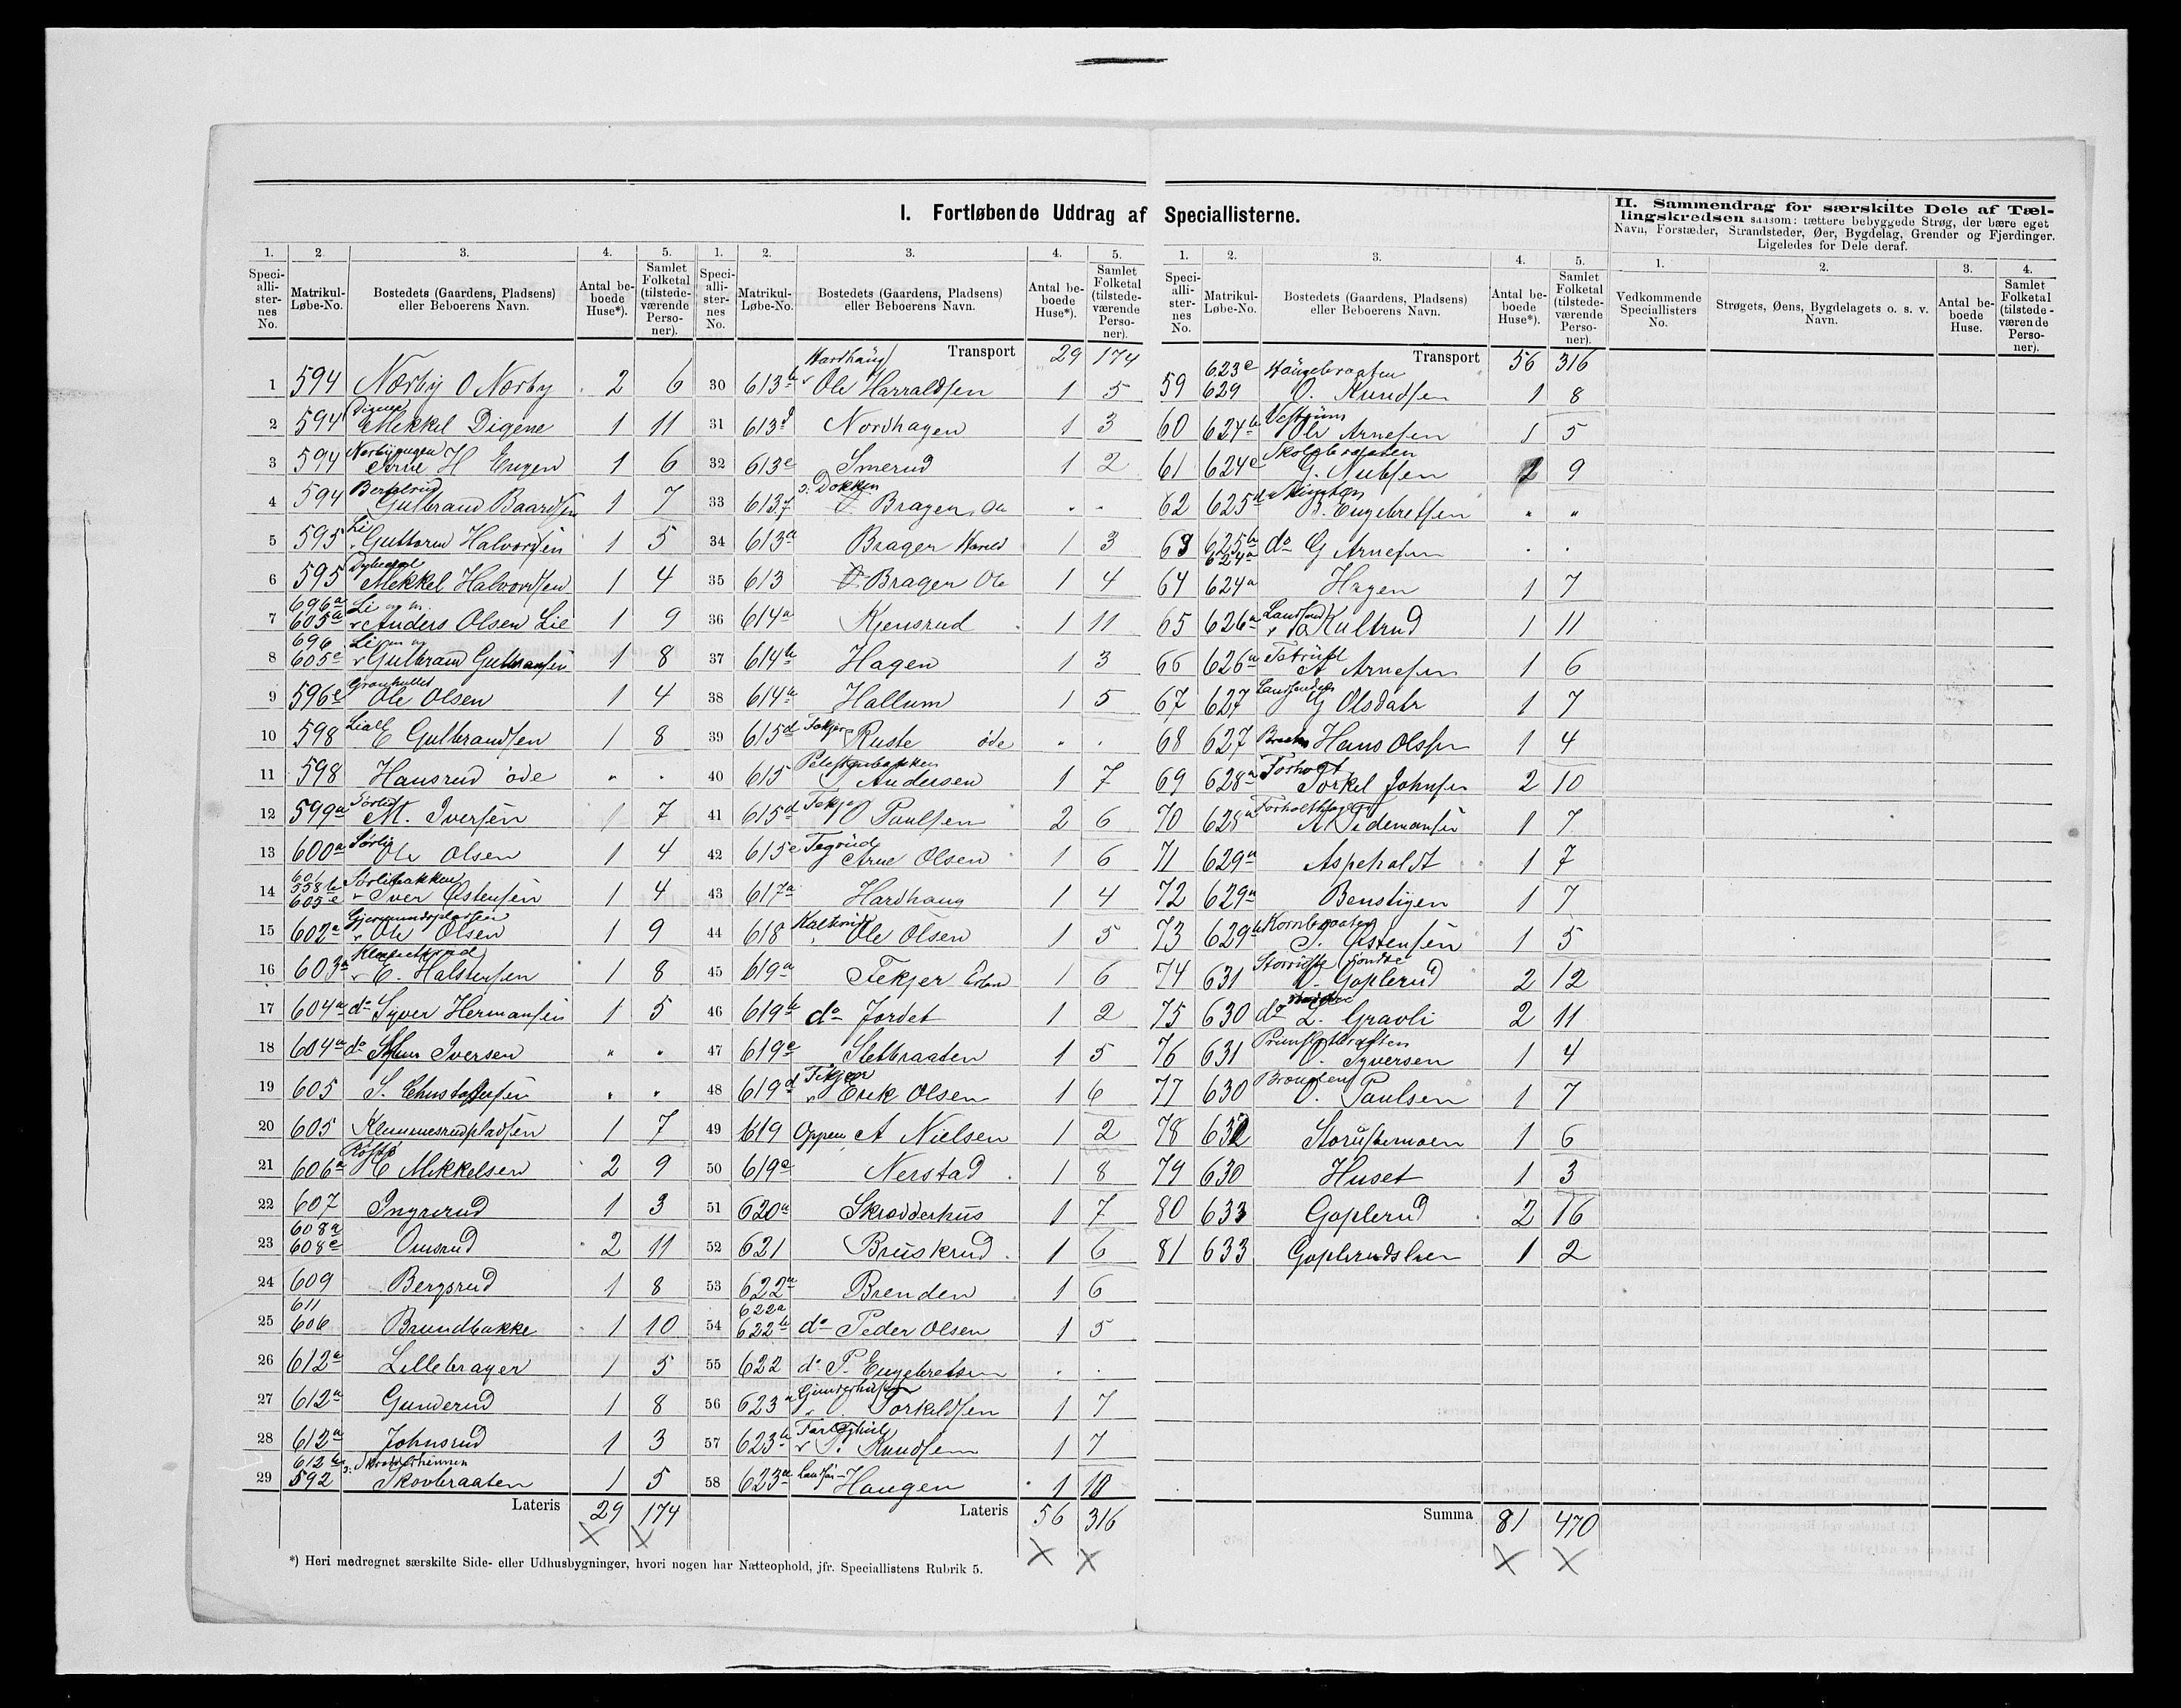 I. Fortløbende Uddrag af Speciallisterne.
II. Sammendrag for særskilte Dele af Tæl-
lingskredsen saasom: tættere bebyggede Strøg, der bære eget
Navn, Forstæder, Strandsteder, Øer, Bygdelag, Grender og Fjerdinger.
Ligeledes for Dele deraf.
1. 2. 3. 4. 5.
Speci-alli-ster-nes No. Matrikul-Løbe-No. Bostedets (Gaardens, Pladsens) eller Beboerens Navn. Antal be-boede Huse*). Samlet Folketal (tilstede-værende Perso-ner).
1 594 Nørby O Nørby 2 6
2 594 Digene Mekkel Digene 1 11
3 594 Arne H Engen 1 6
4 594 Gulbrand Baardsen 1 7
5 595 Li Guttorm Halvorsen 1 5
6 595 Mekkel Halvordsen 1 4
7 696a 605a Li Anders Olsen Lie 1 9
8 696 605c Li Gulbrand Gulbransen 1 8
9 596e Ole Olsen 1 4
10 598 E Gulbrandsen 1 8
11 598 Hansrud øde " "
12 599a Sørli M. Iversen 1 7
13 600a Sørli Ole Olsen 1 4
14 601 558b 605e Sørlibakken Iver Østensen 1 4
15 602a Gjermundsplassen Ole Olsen 1 9
16 603a E. Halstensen 1 8
17 604a do Syver Hermansen 1 5
18 604a do Iversen " "
19 605 S. " "
20 605 Klemmesrudpladsen 1 7
21 606a Mekkelsen 2 9
22 607 Ingrerud 1 3
23 608a 608c Omsrud 2 11
24 609 Bergsrud 1 8
25 611 606 Brundbakke 1 10
26 612a Lillebrager 1 5
27 612a Gunderud 1 8
28 612a Johnsrud 1 3
29 612b 592 Skovbraaten 1 5
Lateris 29 174
1. 2. 3. 4. 5.
Speci-alli-ster-nes No. Matrikul-Løbe-No. Bostedets (Gaardens, Pladsens) eller Beboerens Navn. Antal be-boede Huse*). Samlet Folketal (tilstede-værende Perso-ner).
Transport 29 174
30 613b Hardhaug Ole Harraldsen 1 5
31 613d Nordhagen 1 3
32 613e Smerud 1 2
33 613f Dokken Bragen " "
34 613a Brager Harald 1 3
35 613 Bragen Ole 1 4
36 614a Kjensrud 1 11
37 614b Hagen 1 3
38 614a Hallum 1 5
39 615d Ruste øde " "
40 615 Andersen 1 7
41 615d O Paulsen 2 6
42 615c Arne Olsen 1 6
43 617a Hardhaug 1 4
44 618 Kaltrud Ole Olsen 1 5
45 619a Tekjer 1 6
46 619b do Jordet 1 2
47 619c Sletbraaten 1 5
48 619d Erik Olsen 1 6
49 619 Oppen A Nielsen 1 2
50 619e Nerstad 1 8
51 620a Skrædderhus 1 7
52 621 Bruskrud 1 6
53 622a Brenden 1 6
54 622a 622b do Peder Olsen 1 5
55 622 do P. Engebretsen " "
56 623a Torkildsen 1 7
57 623b Knudsen 1 7
58 623a Haugen 1 10
Lateris 56 316
1. 2. 3. 4. 5.
Speci-alli-ster-nes No. Matrikul-Løbe-No. Bostedets (Gaardens, Pladsens) eller Beboerens Navn. Antal be-boede Huse*). Samlet Folketal (tilstede-værende Perso-ner).
Transport 56 316
59 623e 629 O. Knudsen 1 8
60 624b Ole Arnesen 1 5
61 624c 2 9
62 625d B. Engebretsen " "
63 625b 624a do G Arnesen " "
64 624a Hagen 1 7
65 626a Kultrud 1 11
66 626a A Arnesen 1 6
67 627 G Olsdatr 1 7
68 627 Hans Olsen 1 4
69 628a Torkel Johnsen 2 10
70 628a A Tidemansen 1 7
71 629a Aspeholdt 1 7
72 629a Benstigen 1 7
73 629b Kornbraaten Østensen 1 5
74 631 O. Goplerud 2 12
75 630 do L. Gravli 2 11
76 631 O. Syversen 1 4
77 630 O. Paulsen 1 7
78 632 Storustemoen 1 6
79 630 Huset 1 3
80 633 Goplerud 2 16
81 633 Goplerudseier 1 2
Summa 81 470
1. 2. 3. 4.
Vedkommende Speciallisters No. Strøgets, Øens, Bygdelagets o. s. v. Navn. Antal be-boede Huse. Samlet Folketal (tilstede-værende Perso-ner).
*) Heri medregnet særskilte Side- eller Udhusbygninger, hvori nogen har Natteophold, jfr. Speciallistens Rubrik 5.